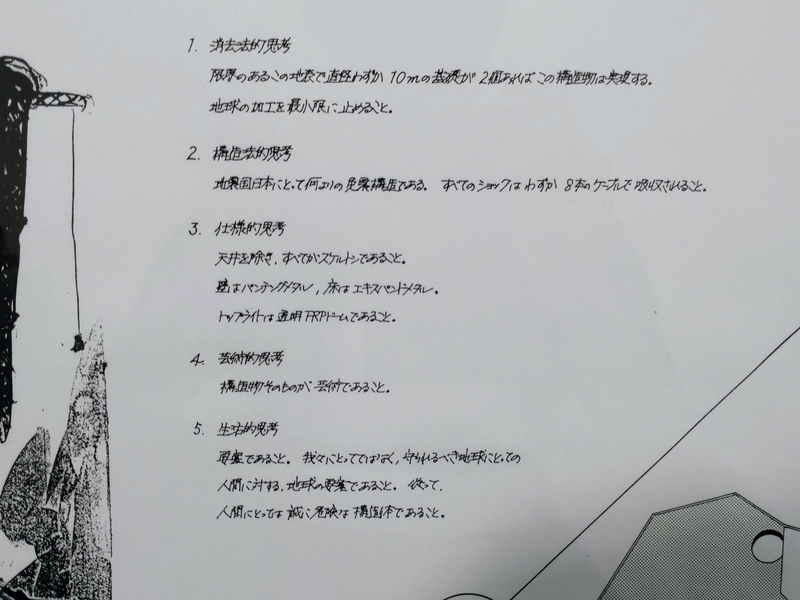 1. 消去法的思考
限界のあるこの地表で直径わずか10mの基礎が2個あればこの構造物は実現する。
地球の加工を最小限に止めること。
2. 構造法的思考
地震国日本にとって何よりの免震構造である。すべてのショックはわずか8本のケーブルで吸収されること。
3. 仕様的思考
天井を除き、すべてがスケルトンであること。
壁はパンチングメタル,床はエキスパンドメタル。
トップライトは透明FRPドームであること。
4. 芸術的思考
構造物そのものが芸術であること。
5. 生活的思考
要塞であること。我々にとってではなく,守られるべき地球にとっての
人間に対する,地球の要塞であること。従って,
人間にとっては誠に危険な構造体であること。